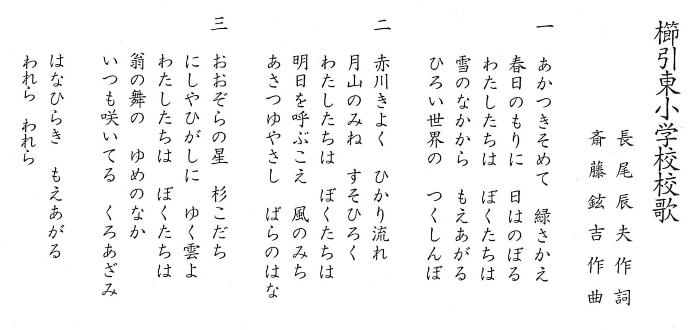 櫛引東小学校校歌
長尾辰夫作詞
斎藤鉉吉作曲
一
あかつきそめて　緑さかえ
春日のもりに　日はのぼる
わたしたちは　ぼくたちは
雪のなかから　もえあがる
ひろい世界の　つくしんぼ
二
赤川きよく　ひかり流れ
月山のみね　すそひろく
わたしたちは　ぼくたちは
明日を呼ぶこえ　風のみち
あさつゆやさし　ばらのはな
三
おおぞらの星　杉こだち
にしやひがしに　ゆく雲よ
わたしたちは　ぼくたちは
翁の舞の　ゆめのなか
いつも咲いてる　くろあざみ
はなひらき　もえあがる
われら　われら